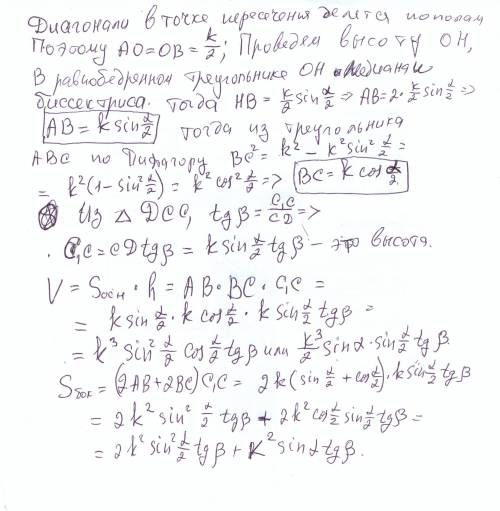 Диагонали в точке пересечения делятся пополам
Поэтому AO=OB=k/2; Проведем высоту OH,
В равнобедренном треугольнике OH медиана и
биссектриса. тогда HB = k/2 sin α/2 => AB=2·k/2 sin α/2 =>
AB = k sin α/2 тогда из треугольника
ABC по Пифагору BC² = k² - k² sin² α/2 =
= k²(1-sin² α/2) = k² cos² α/2 => BC = k cos α/2.
Из △ DCC₁ tg β = C₁C/CD =>
C₁C = CD tg β = k sin α/2 tg β - это высота.
V = Sосн · h = AB · BC · C₁C =
= k sin α/2 · k cos α/2 · k sin α/2 tg β =
= k³ sin² α/2 cos α/2 tg β или k³/2 sin α · sin α/2 tg β.
Sбок = (2AB+2BC) C₁C = 2k (sin α/2 + cos α/2) · k sin α/2 tg β
= 2k² sin² α/2 tg β + 2k² cos α/2 sin α/2 tg β =
= 2k² sin² α/2 tg β + k² sin α tg β.